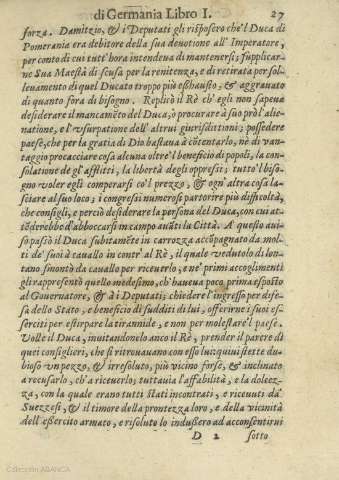 di Germania Libro I. 27
forza. Damitzio, & i Deputati gli risposero che'l Duca di
Pomerania era debitore della sua deuotione all' Imperatore,
per conto di cui tutt' hora intendeua di mantenersi; supplicar-
ne Sua Maestà di scusa per la renitenza, e di retirata per sol-
leuamento di quel Ducato troppo più esshausto, & aggrauato
di quanto fora di bisogno. Replicò il Rè ch'egli non sapeua
desiderare il mancamẽto del Duca, ò procurare à suo prò l'alie-
natione, e l'vsurpatione dell' altrui giurisditioni; possedere
paese, che per la gratia di Dio bastaua à cõtentarlo, nè di van-
taggio procacciare cosa alcuna oltre'l beneficio di popoli, la con-
solatione de gl' afflitti, la libertà degli oppressi; tutto'l biso-
gno voler egli comperarsi co'l prezzo, & ogn' altra cosa la-
sciare al suo loco; i congressi numerosi partorire più difficoltà,
che consigli, e perciò desiderare la persona del Duca, con cui at-
tẽderebbe d'abboccarsi in campo auãti la Città. A questo aui-
so passò il Duca subitamẽte in carrozza accõpagnato da mol-
ti de' suoi à cauallo in contr' al Rè, il quale vedutolo di lon-
tano smontò da cauallo per riceuerlo, e ne' primi accoglimenti
gli rappresentò quello medesimo, ch'haueua poco prima esposto
al Gouernatore, & à i Deputati; chiedere l'ingresso per dife-
sa dello Stato, e beneficio di sudditi di lui, offerirne i suoi es-
serciti per estirpare la tirannide, e non per molestare'l paese.
Volle il Duca, inuitandonelo anco il Rè, prender il parere di
quei consiglieri, che si ritrouauano con esso lui: qui ui stette du-
bioso vn pezzo, & irresoluto, più vicino forse, & inclinato
a recusarlo, ch'a riceuerlo; tuttauia l'affabilità, e la dolcez-
za, con la quale erano tutti stati incontrati, e riceuuti da'
Suezzesi, & il timore della prontezza loro, e della vicinità
dell' essercito armato, e risoluto lo indussero ad acconsentirui
D 2 sotto
Colección ABANCA